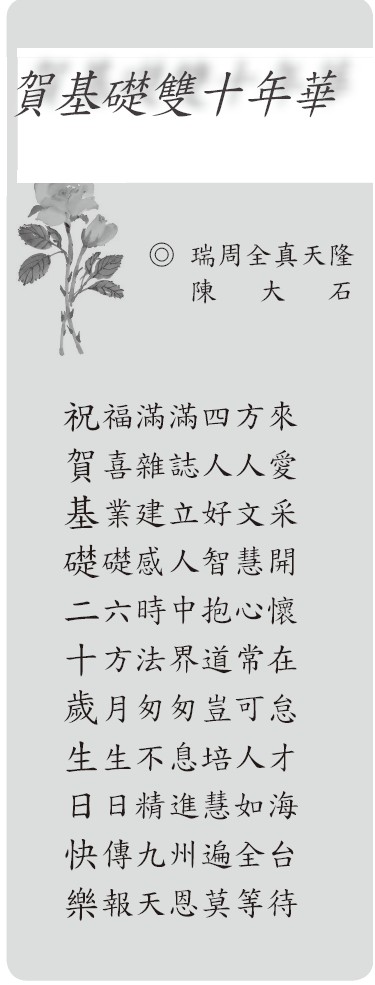 賀基礎雙十年華
◎ 瑞周全真天隆
陳大石
祝福滿滿四方來
賀喜雜誌人人愛
基業建立好文采
礎礎感人智慧開
二六時中抱心懷
十方法界道常在
歲月匆匆豈可怠
生生不息培人才
日日精進慧如海
快傳九州遍全台
樂報天恩莫等待